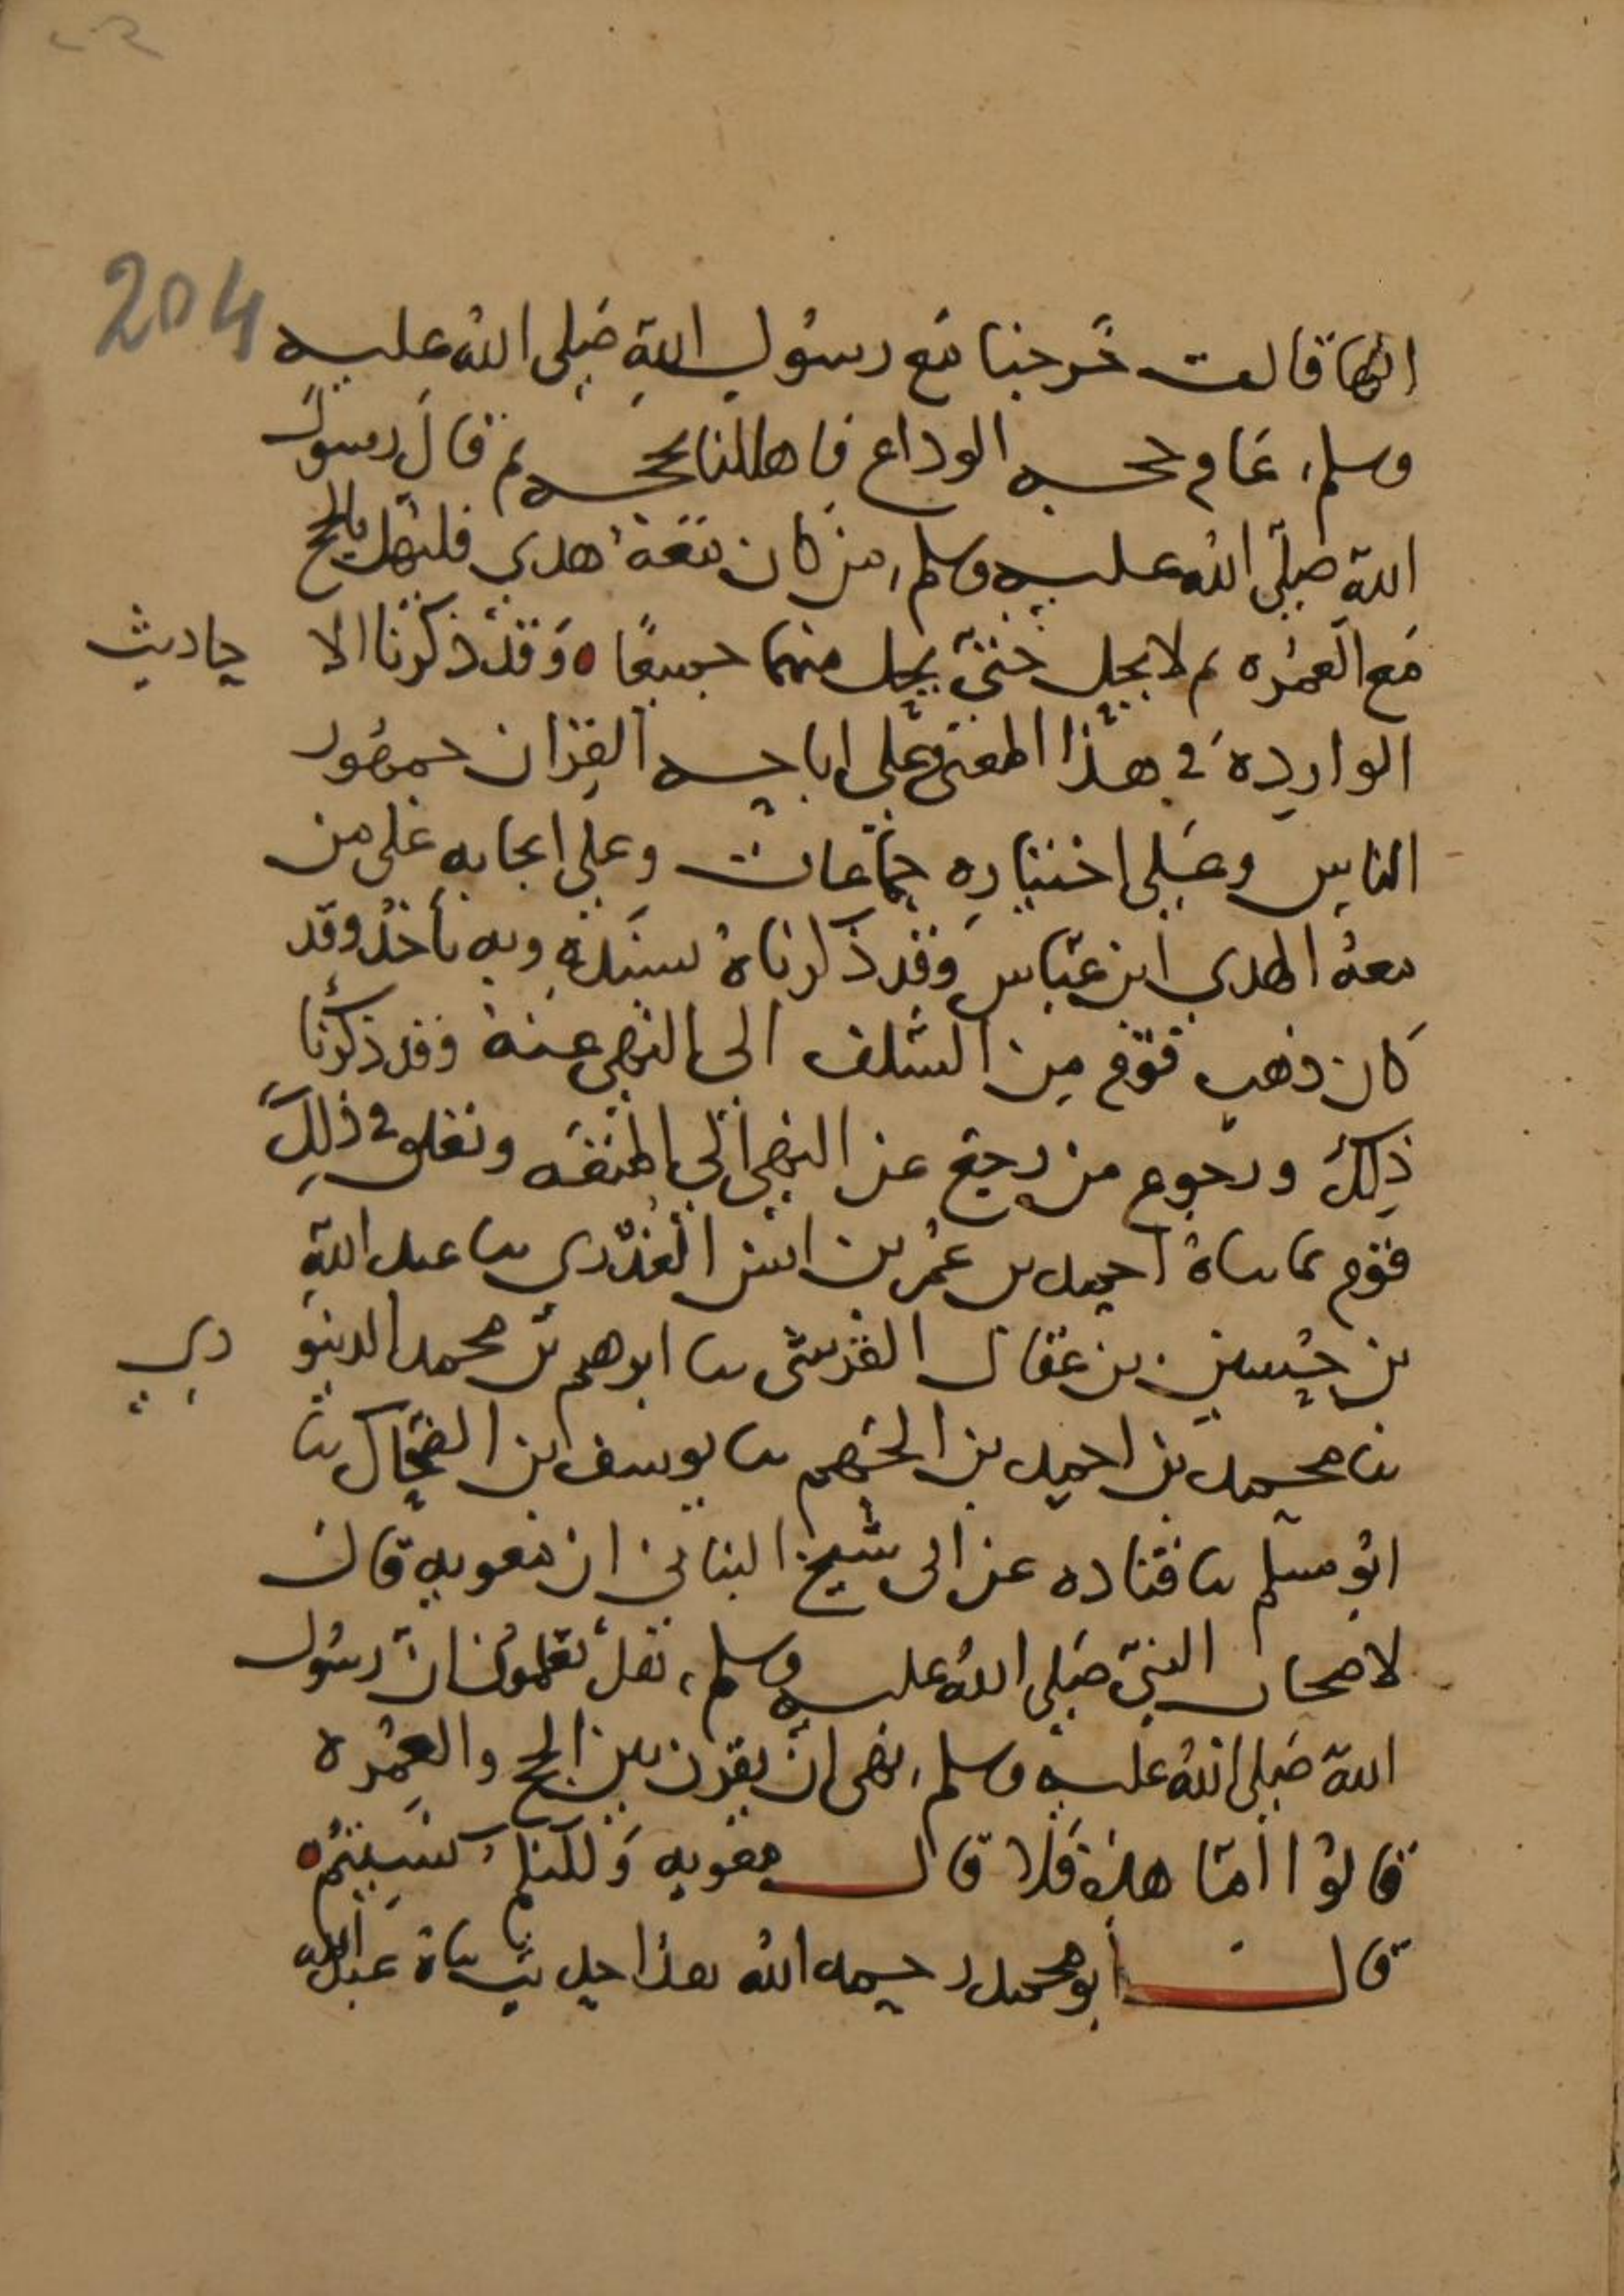 204
انها قالت خرجنا مع رسول الله صلى الله عليه
وسلم عام حجه الوداع فاهللنا بحجه ثم قال رسول
الله صلى الله عليه وسلم من كان معه هدي فليهل بالحج
مع العمره ثم لا يحل حتى يحل منهما جميعا ه وقد ذكرنا الا حاديث
الوارده في هذا المعنى وعلى اباحه القران جمهور
الناس وعلى اختياره جماعات وعلى ايجابه على من
معه الهدي ابن عباس وقد ذكرناه بسنده وبه ناخذ وقد
كان ذهب قوم من السلف الى النهي عنه وقد ذكرنا
ذلك ورجوع من رجع عن النهي الى المتعه وتعلق في ذلك
قوم بما ثناه احمد بن عمر بن انس العذري ثنا عبد الله
بن حسين بن عقال القرشي ثنا ابرهيم بن محمد الدينو ري
ثنا محمد بن احمد بن الجهم ثنا يوسف بن الضحاك ثنا
ابو مسلم ثنا قتاده عن ابي شيخ البناني ان معويه قال
لاصحاب النبي صلى الله عليه وسلم هل تعلمون ان رسول
الله صلى الله عليه وسلم نهى ان يقرن بين الحج والعمره
قالوا اما هذه فلا قال معويه ولكنكم نسيتم ه
قال ابو محمد رحمه الله هذا حديث ثناه عبد الله